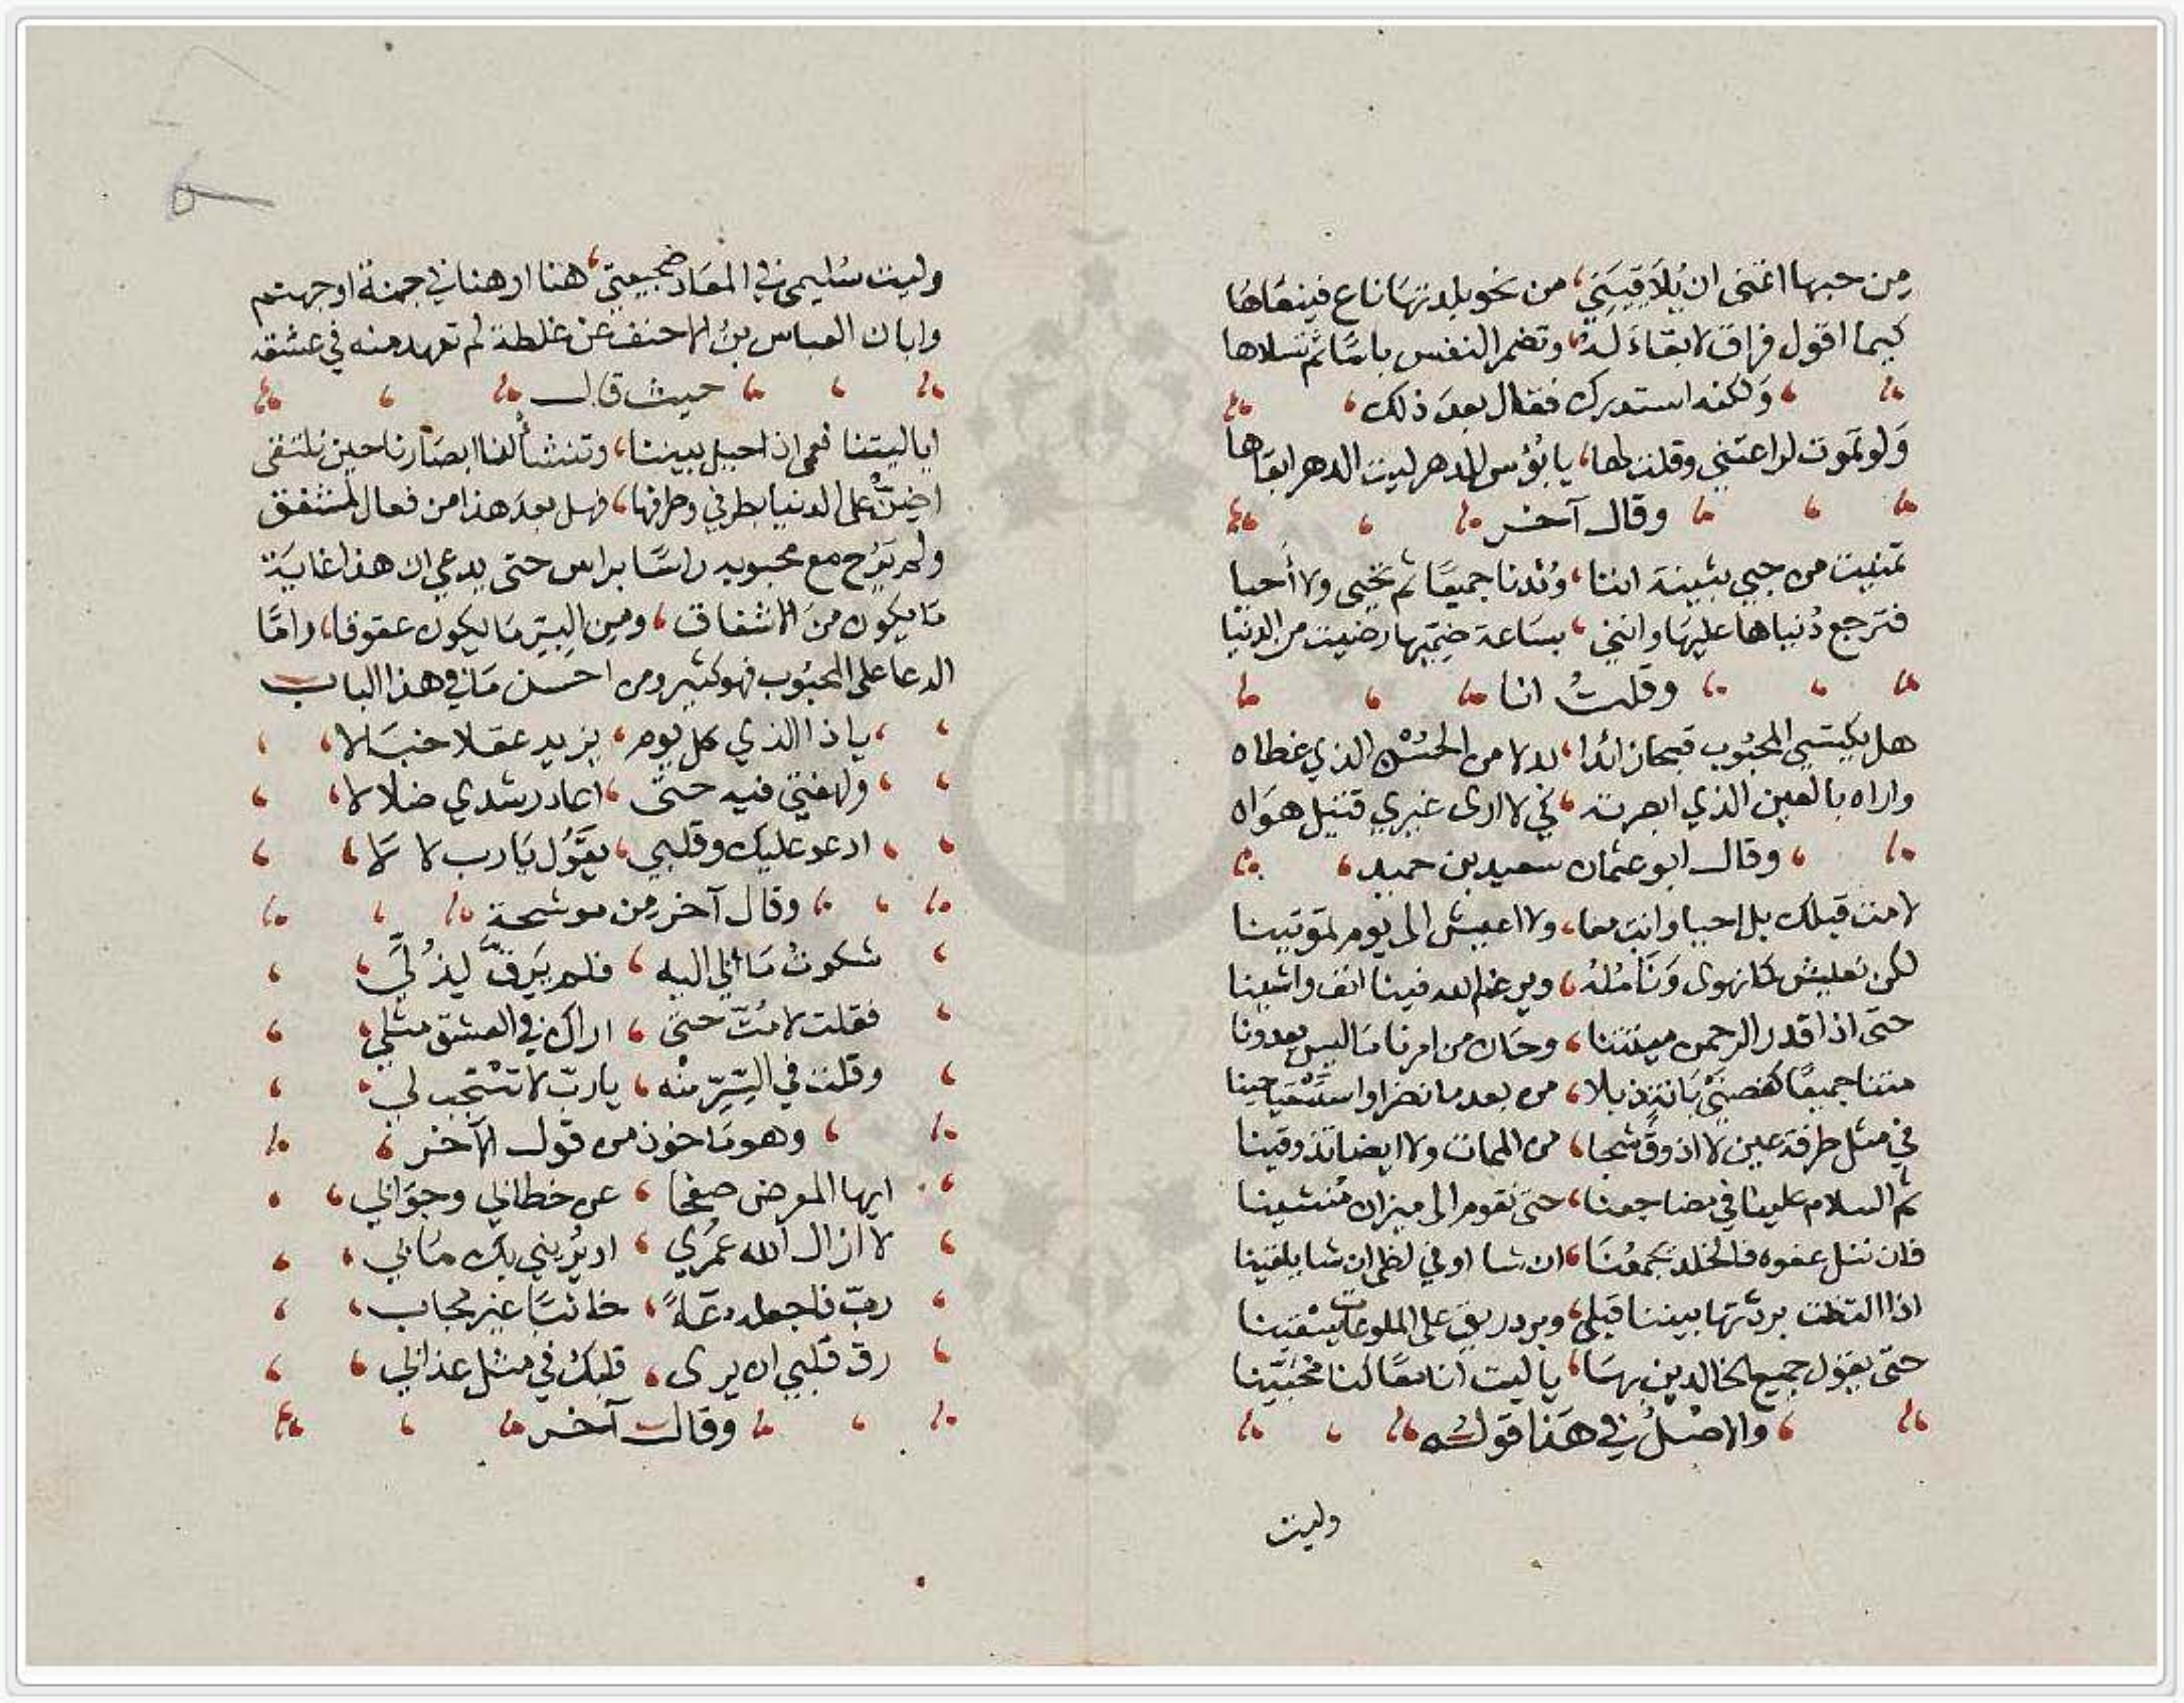 من حبها اتمنى ان يُلاَقِيَنِي، من نحو بلدتها ناع فينعاها
كيما اقول فراق لا بقاءَ لهُ، وتضمر النفس ياسًا ثم تسلاها
ولكنه استدرك فقال بعدَ ذلك،
وَلو تموت لراعتني وقلت لها، يا بُؤس للدهر ليت الدهر ابقاها
وقال آخر
تمنيت من حبي بثينة اننا، وُئدنا جميعًا ثم تحيى ولا أحيا
فترجع دُنياها عليهَا وانني، بسَاعة ضميها رضيت من الدنيا
وقلتُ انا
هل يكتسي المحبُوب قبحا زائدا، بدلا من الحُسْن الذي غطاه
واراه بالعين الذي ابصرته، كي لا ارى غيري قتيل هوَاه
وقال ابو عثمان سعيد بن حميد،
لا مت قبلك بل احيا وانت معا، ولا اعيش الى يوم تموتينا
لكن نعيش كما نهوى وَنَأمُلهُ، ويرغم الله فينا انف واشينا
حتى اذا قدر الرحمن ميتتنا، وحَان من امرنا مَا ليس يعدونا
متنا جميعًا كغصنَيْ بَانة ذبلا، من بعد ما نضرا واستَوْسَقا حينا
في مثل طرفة عين لا اذوق شجا، من الممات ولا ايضا تذوقينا
ثم السلام علينا في مضاجعنا، حتى نقوم الى ميزان مُنشينا
فان ننل عفوه فالخلد يجمعُنَا، ان شا او في لظى ان شا يلقينا
اذا التظت بردتها بيننا قبلي، وبرد ريق على الملوعات يسْقينا
حتى يقول جميع الخالدين بهَا، يا ليت انا معًا كنا مُحبّينا
والاصْلُ في هَذا قولُه
وليت
وليت سُليمى في المعَاد ضجيعتي، هنا او هنا في جنة او جهنم
وابان العباس بنُ الاحنف عن غلطة لم تعهد منه في عشقه
حيث قال
ايا ليتنا نعمى اذا حيل بيننا، وتنشأ لنا ابصَارنا حين نلتقى
اضِنُّ على الدنيا بطرفي وطرفها، فهل بعدَ هذا من فعال لمشفق
ولم يَرُح مع محبوبه راسًا براس حتى يدعي ان هذا غايَة
مَا يكون منَ الاشفاق، ومِن البِرّ مَا يكون عقوقا، وامَّا
الدعا على المحبُوب فهو كثير ومن احسن مَا في هذا الباب
يا ذا الذي كل يوم، يزيد عقلا خبَالا،
ولهفتي فيه حتّى، اعاد رشدي ضلالا،
ادعو عليك وقلبي، يقُول يَا رب لا لَا،
وقال آخر من موشحة
شكوتُ مَا بي اليه، فلم يَرِقَّ لِذُلِّي،
فقلت لا مُتّ حتى، اراك في العشق مثلي،
وقلت في السِّرِّ منْه، ياربّ لا تسْتجب لي،
وهو مَاخوذ من قول الآخر،
ايها المعرض صفحا، عن خطابي وجوَابي،
لا ازال الله عمُري، او يُريني بك مَا بي،
ربّ فاجعله دعَاءً، خائبًا غير مجاب،
رق قلبي ان يرى، قلبكَ في مثل عذابي،
وقال آخر